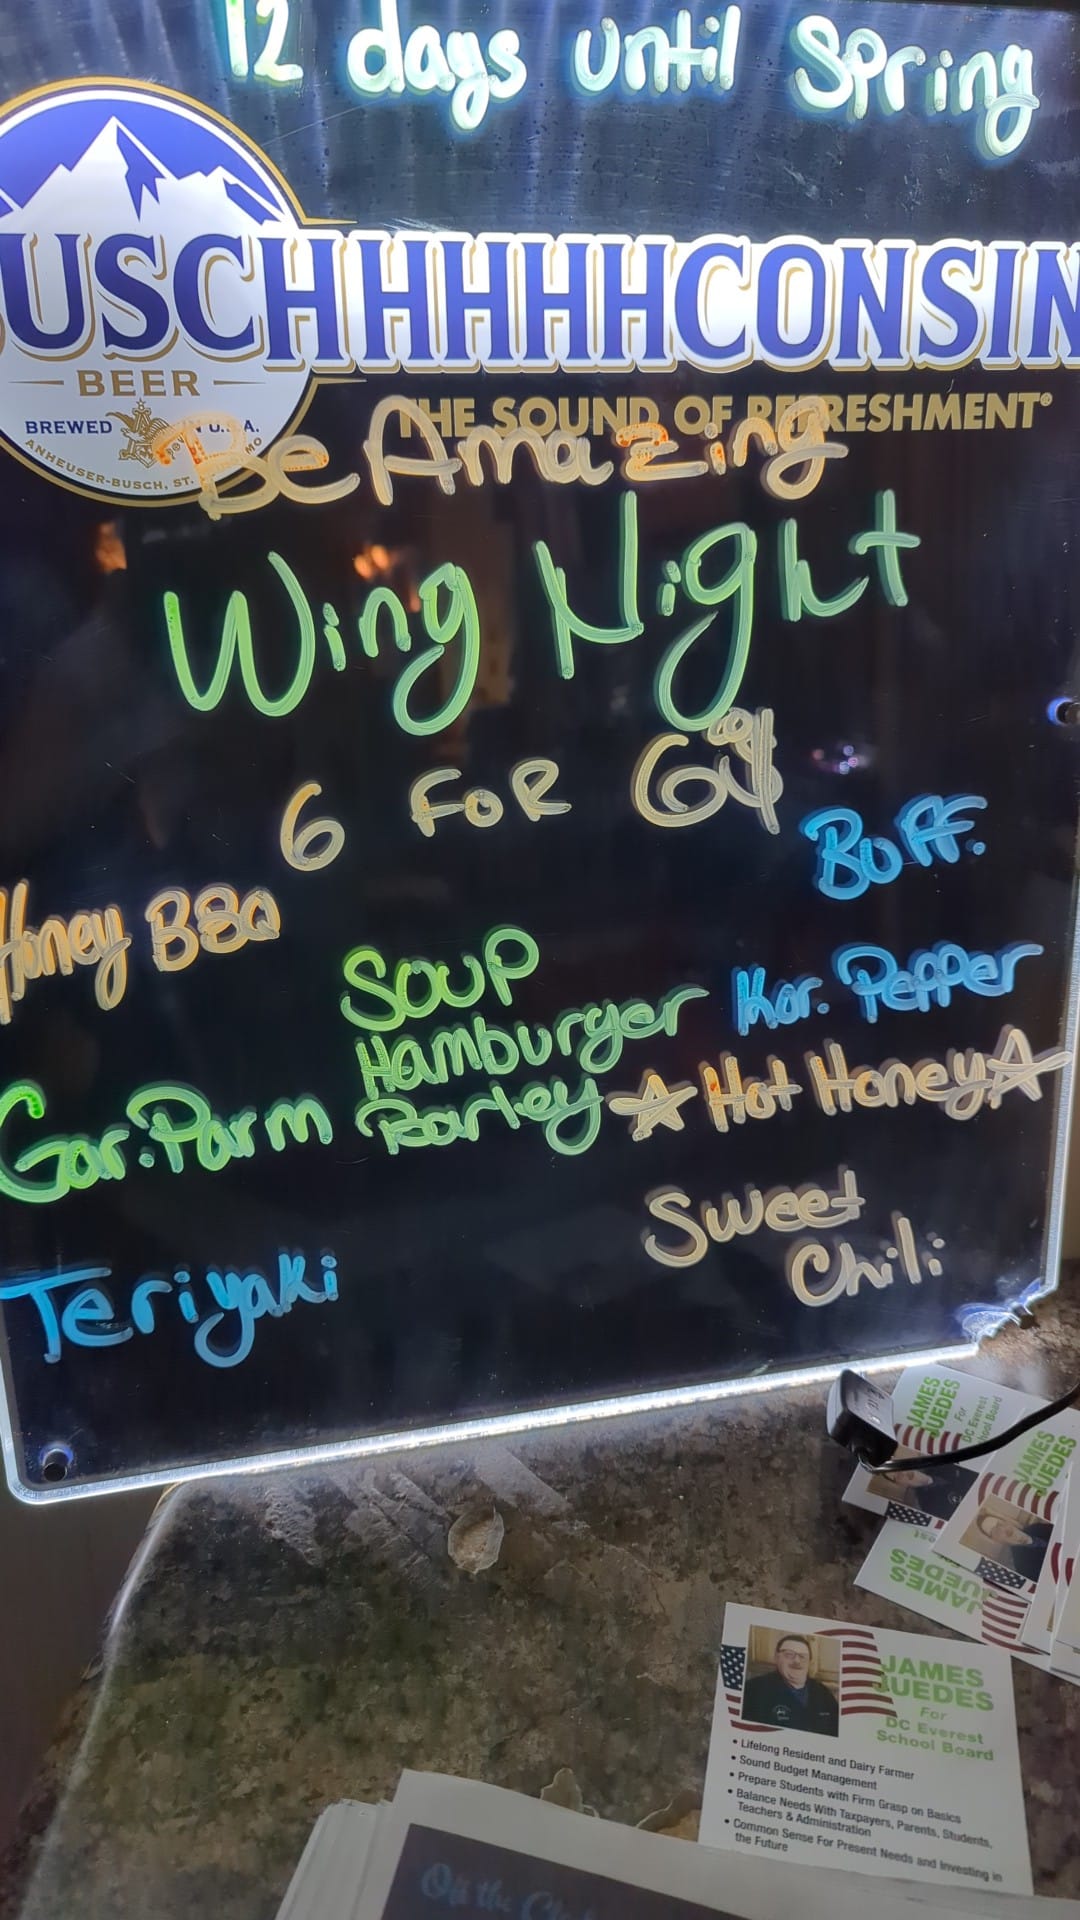 12 days until Spring
USCHHHHHCONSIN
BEER
THE SOUND OF REFRESHMENT®
BREWED IN U.S.A.
ANHEUSER-BUSCH, ST. MO
Be Amazing
Wing Night
6 FOR 6
Buff.
Honey BBQ
Soup
Hamburger
Barley
Kor. Pepper
Gar. Parm
☆ Hot Honey ☆
Sweet
Chili
Teriyaki
JAMES
JUEDES
For
DC Everest
School Board
JAMES
JUEDES
JAMES
JUEDES
JAMES
JUEDES
For
DC Everest
School Board
• Lifelong Resident and Dairy Farmer
• Sound Budget Management
• Prepare Students with Firm Grasp on Basics
• Balance Needs With Taxpayers, Parents, Students,
Teachers & Administration
• Common Sense For Present Needs and Investing in
the Future